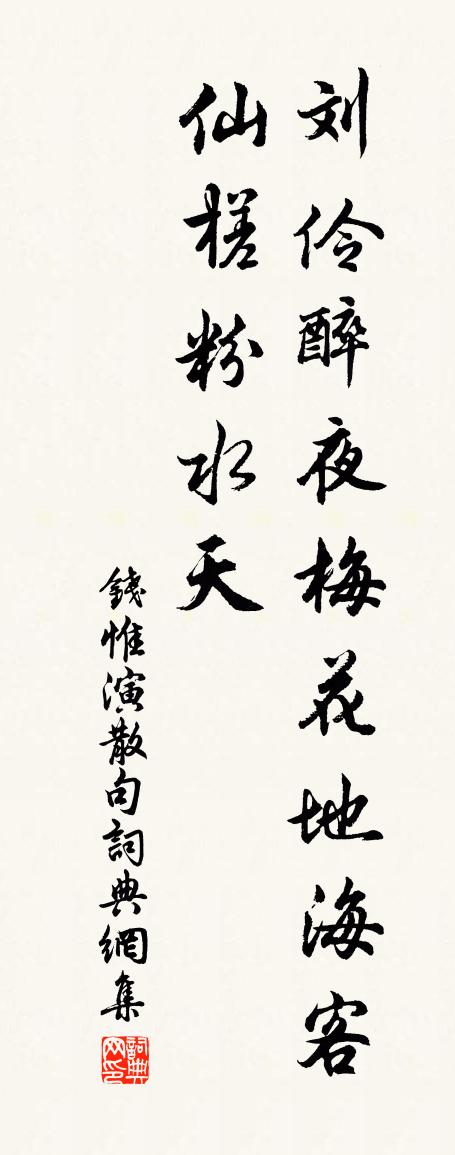 刘伶醉夜梅花地海客
仙槎粉水天
錢惟演散句詞典網集
詞典网印